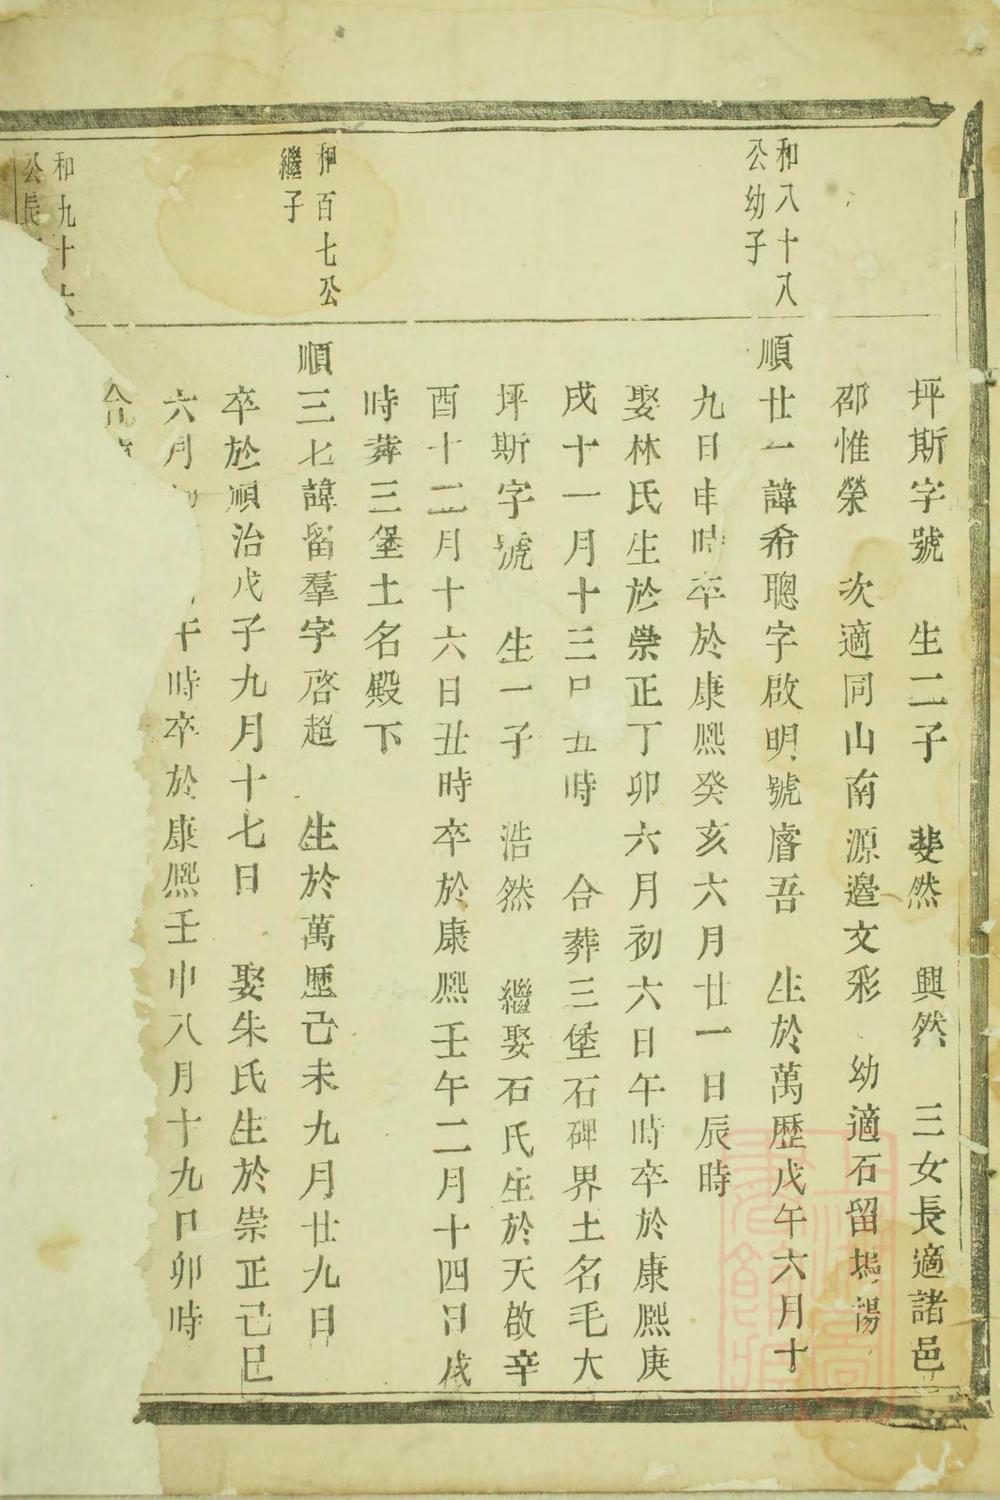 坪斯字號 生二子 斐然 興然 三女長適諸邑
邵惟榮 次適同山南源邉文彩 幼適石留塢
和八十八
公幼子
順廿一諱希聰字啟明號睿吾 生於萬歷戊午六月十
九日申時卒於康熙癸亥六月廿一日辰時
娶林氏生於崇正丁卯六月初六日午時卒於康熙庚
戌十一月十三日丑時 合葬三堡石碑界土名毛大
坪斯字號 生一子 浩然 繼娶石氏生於天啟辛
酉十二月十六日丑時卒於康熙壬午二月十四日戌
時葬三堡土名殿下
和百七公
繼子
順三七諱留羣字啓超 生於萬歷己未九月廿九日
卒於順治戊子九月十七日 娶朱氏生於崇正己巳
六月 午時卒於康熙壬申八月十九日卯時
和九十六
公長
合